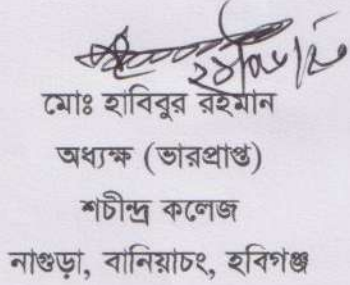 মোঃ হাবিবুর রহমান
অধ্যক্ষ (ভারপ্রাপ্ত)
শচীন্দ্র কলেজ
নাগুড়া, বানিয়াচং, হবিগঞ্জ